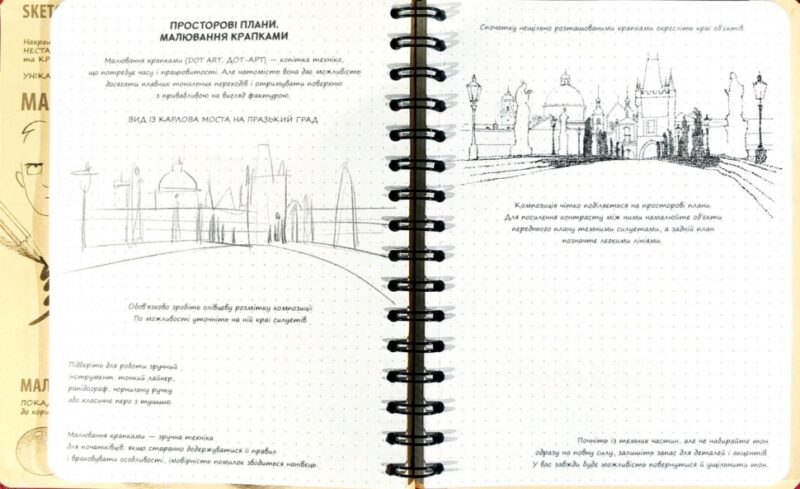 SKET
Нахраш
НЕСТА
та КР
УНІКА
МА
МАЛ
ПОКАД
до кори
ПРОСТОРОВІ ПЛАНИ.
МАЛЮВАННЯ КРАПКАМИ
Малювання крапками (DOT ART, ДОТ-АРТ) — копітка техніка,
що потребує часу і працьовитості. Але натомість вона дає можливість
досягати плавних тональних переходів і отримувати поверхню
з привабливою на вигляд фактурою.
ВИД ІЗ КАРЛОВА МОСТА НА ПРАЗЬКИЙ ГРАД
Обов'язково зробіть олівцеву розмітку композиції.
По можливості уточніть на ній краї силуетів.
Підберіть для роботи зручний
інструмент: тонкий лайнер,
рапідограф, чорнильну ручку
або класичне перо з тушшю.
Малювання крапками — зручна техніка
для початківців: якщо старанно додержуватися її правил
і враховувати особливості, імовірність помилок зводиться нанівець.
Спочатку нещільно розташованими крапками окресліть краї об'єктів.
Композиція чітко поділяється на просторові плани.
Для посилення контрасту між ними намалюйте об'єкти
переднього плану темними силуетами, а задній план
позначте легкими лініями.
Почніть із темних частин, але не набирайте тон
одразу на повну силу, залишіть запас для деталей і акцентів.
У вас завжди буде можливість повернутися й ущільнити тон.